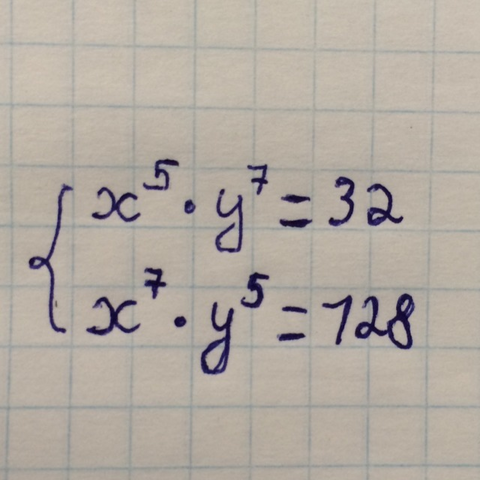 x⁵ · y⁷ = 32
x⁷ · y⁵ = 128